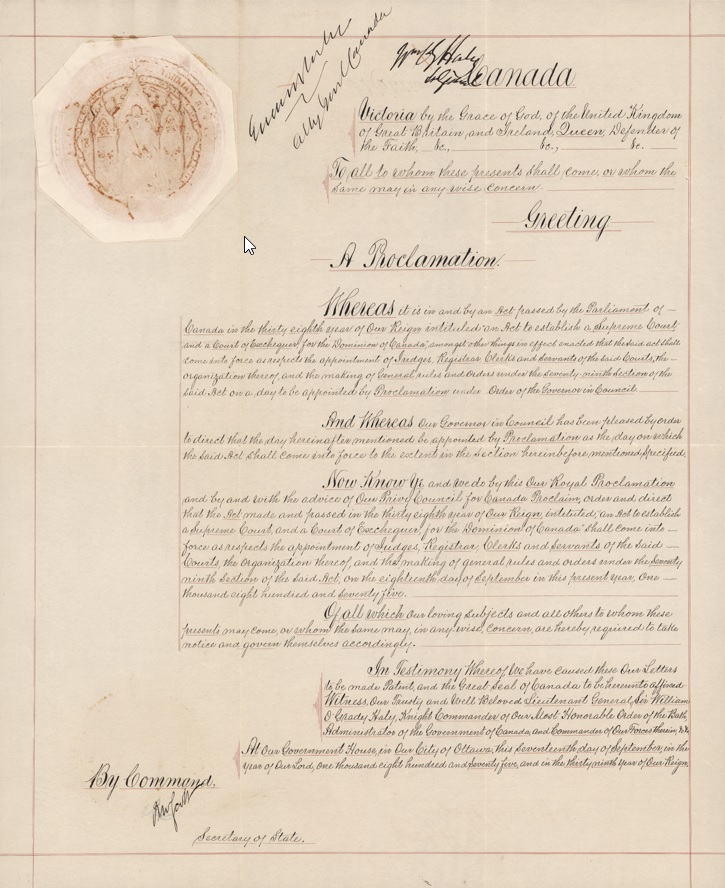 Canada
Victoria by the Grace of God, of the United Kingdom
of Great Britain and Ireland, Queen, Defender of
the Faith, &c., &c., &c.
To all to whom these presents shall come, or whom the
same may in any wise concern
Greeting
A Proclamation.
Whereas it is in and by an Act passed by the Parliament of
Canada in the thirty eighth year of Our Reign intituled "an Act to establish a Supreme Court
and a Court of Exchequer, for the Dominion of Canada", amongst other things in effect enacted that the said act shall
come into force as respects the appointment of Judges, Registrar Clerks and Servants of the said Courts, the
organization thereof, and the making of General rules and Orders under the seventy ninth Section of the
said Act on a day to be appointed by Proclamation under Order of the Governor in Council.
And Whereas Our Governor in Council has been pleased by order
to direct that the day hereinafter mentioned be appointed by Proclamation as the day on which
the said Act shall come into force to the extent in the Section hereinbefore mentioned specified.
Now Know Ye and we do by this Our Royal Proclamation
and by and with the advice of Our Privy Council for Canada Proclaim, order and direct
that the Act made and passed in the thirty eighth year of Our Reign, intituled, "an Act to establish
a Supreme Court, and a Court of Exchequer, for the Dominion of Canada" shall come into
force as respects the appointment of Judges, Registrar, Clerks and Servants of the said
Courts, the organization thereof, and the making of general rules and orders under the Seventy
ninth Section of the said Act, on the eighteenth day of September in this present year, One
thousand eight hundred and seventy five.
Of all which Our loving Subjects and all others to whom these
presents may come, or whom the same may, in any wise, concern, are hereby required to take
notice and govern themselves accordingly.
In Testimony Whereof We have caused these Our Letters
to be made Patent, and the Great Seal of Canada to be hereunto affixed
Witness, Our Trusty and Well Beloved Lieutenant General, Sir William
O'Grady Haly, Knight Commander of Our Most Honorable Order of the Bath,
Administrator of the Government of Canada, and Commander of Our Forces therein, &c.
At Our Government House, in Our City of Ottawa, this Seventeenth day of September, in the
year of Our Lord, one thousand eight hundred and seventy five, and in the thirty ninth year of Our Reign.
By Command,
Secretary of State.